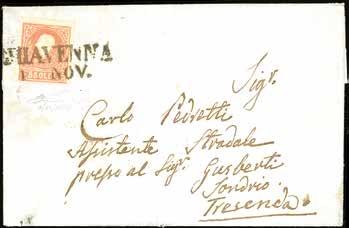 CHIAVENNA
NOV.
5 SOLDI
Sigr.
Carlo Pedretti
Assistente Stradale
presso al Sigr. Gusberti
Sondrio
Tresenda